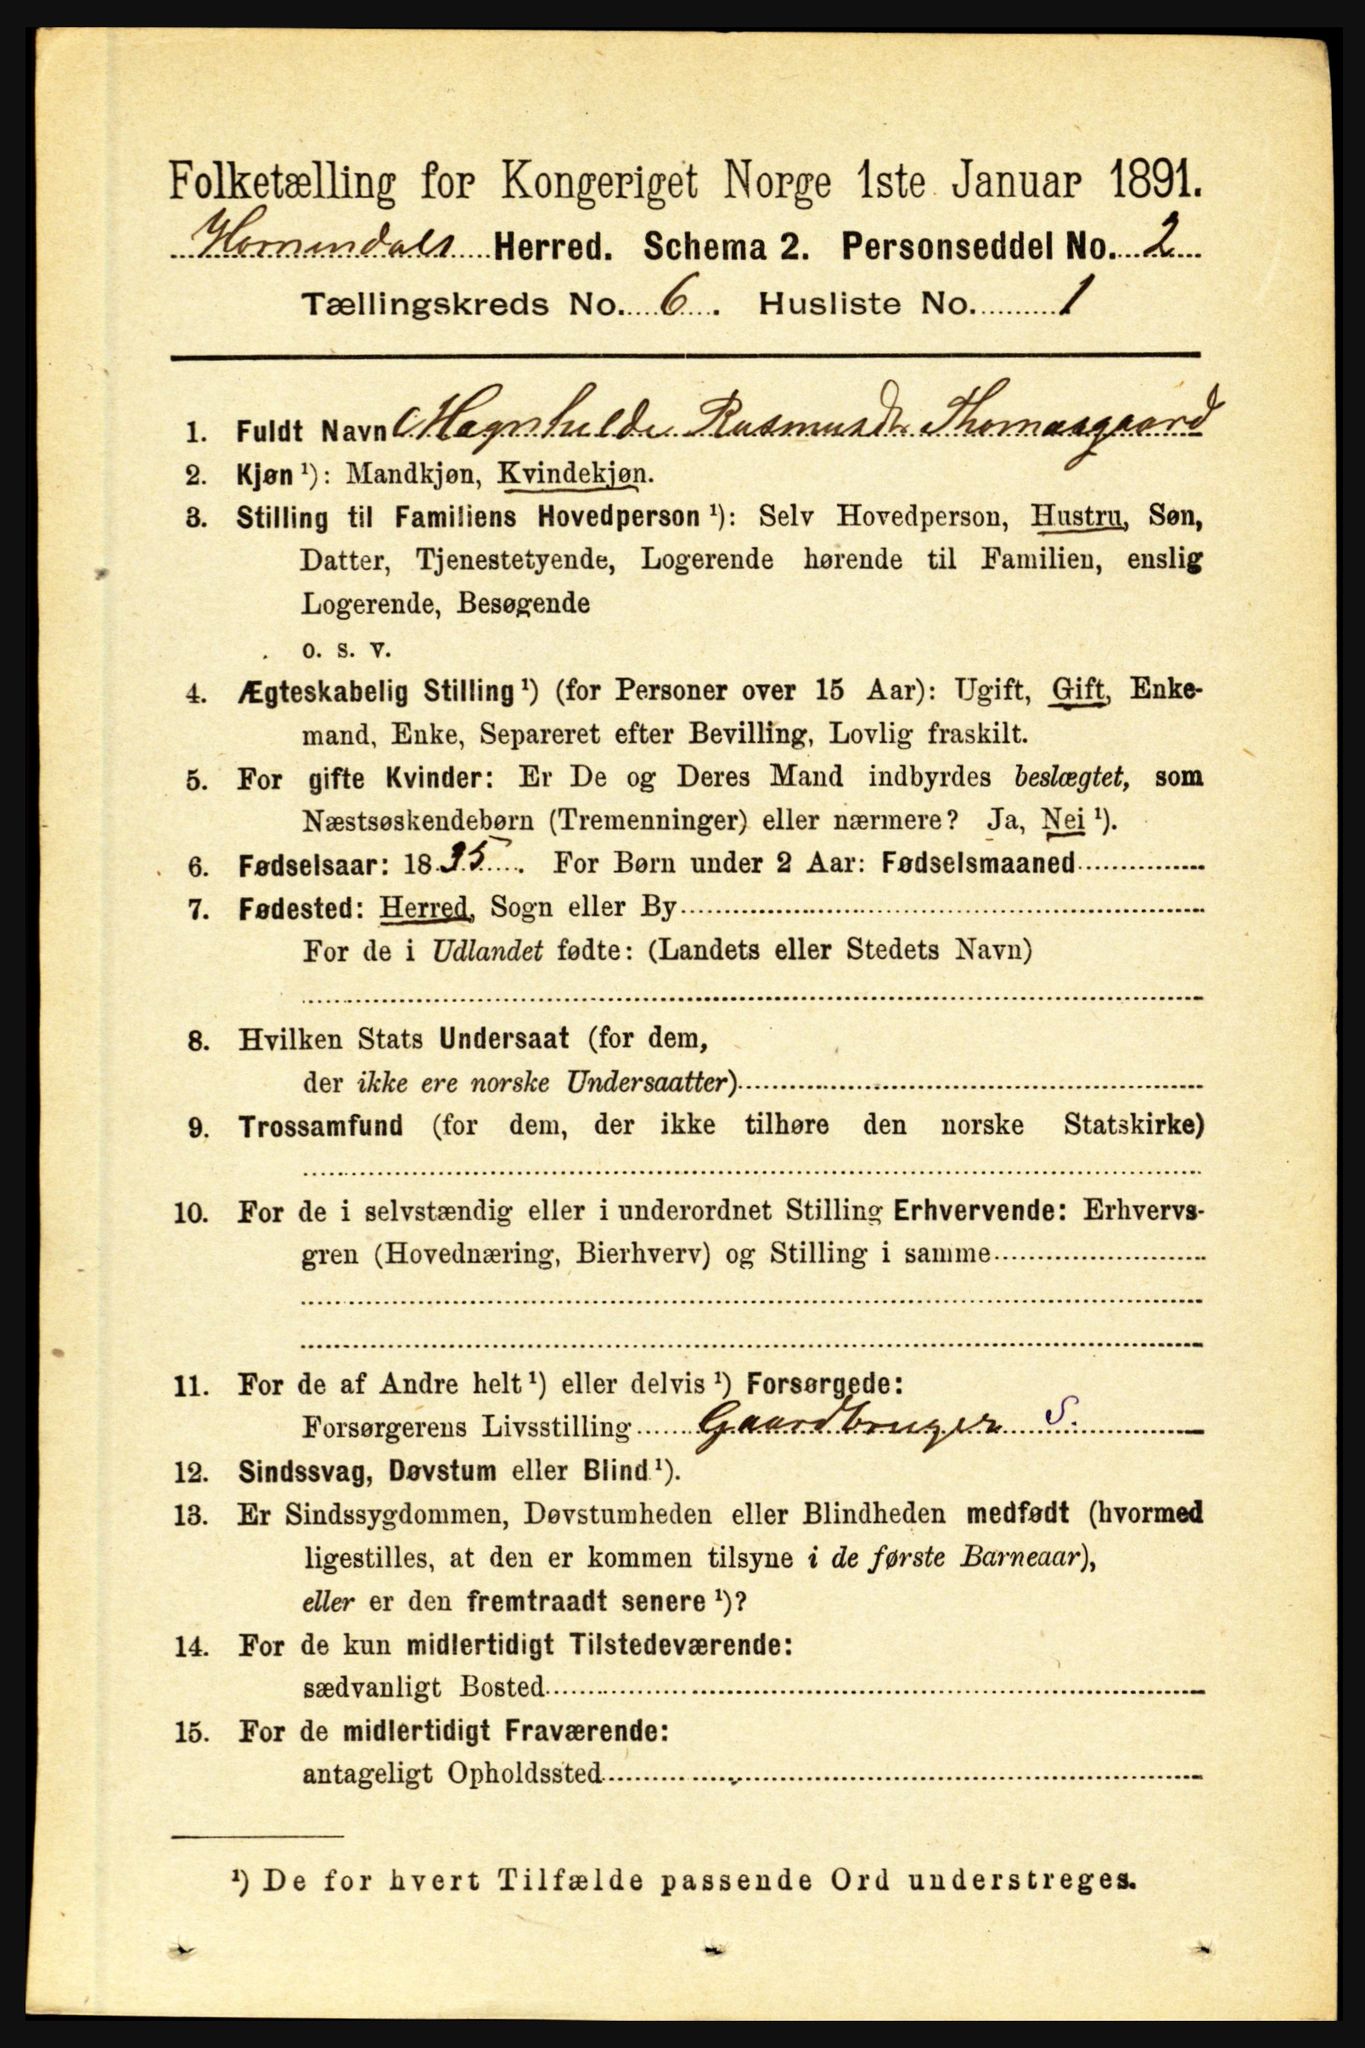 Folketælling for Kongeriget Norge 1ste Januar 1891.
Hornindals Herred. Schema 2. Personseddel No. 2
Tællingskreds No. 6. Husliste No. 1
1. Fuldt Navn Magnhilde Rasmusdr. Thomasgaard
2. Kjøn ¹): Mandkjøn, Kvindekjøn.
3. Stilling til Familiens Hovedperson ¹): Selv Hovedperson, Hustru, Søn,
Datter, Tjenestetyende, Logerende hørende til Familien, enslig
Logerende, Besøgende
o. s. v.
4. Ægteskabelig Stilling ¹) (for Personer over 15 Aar): Ugift, Gift, Enke-
mand, Enke, Separeret efter Bevilling, Lovlig fraskilt.
5. For gifte Kvinder: Er De og Deres Mand indbyrdes beslægtet, som
Næstsøskendebørn (Tremenninger) eller nærmere? Ja, Nei ¹).
6. Fødselsaar: 1835. For Børn under 2 Aar: Fødselsmaaned
7. Fødested: Herred, Sogn eller By
For de i Udlandet fødte: (Landets eller Stedets Navn)
8. Hvilken Stats Undersaat (for dem,
der ikke ere norske Undersaatter)
9. Trossamfund (for dem, der ikke tilhøre den norske Statskirke)
10. For de i selvstændig eller i underordnet Stilling Erhvervende: Erhvervs-
gren (Hovednæring, Bierhverv) og Stilling i samme
11. For de af Andre helt ¹) eller delvis ¹) Forsørgede:
Forsørgerens Livsstilling Gaardbruger S.
12. Sindssvag, Døvstum eller Blind ¹).
13. Er Sindssygdommen, Døvstumheden eller Blindheden medfødt (hvormed
ligestilles, at den er kommen tilsyne i de første Barneaar),
eller er den fremtraadt senere ¹)?
14. For de kun midlertidigt Tilstedeværende:
sædvanligt Bosted
15. For de midlertidigt Fraværende:
antageligt Opholdssted
¹) De for hvert Tilfælde passende Ord understreges.